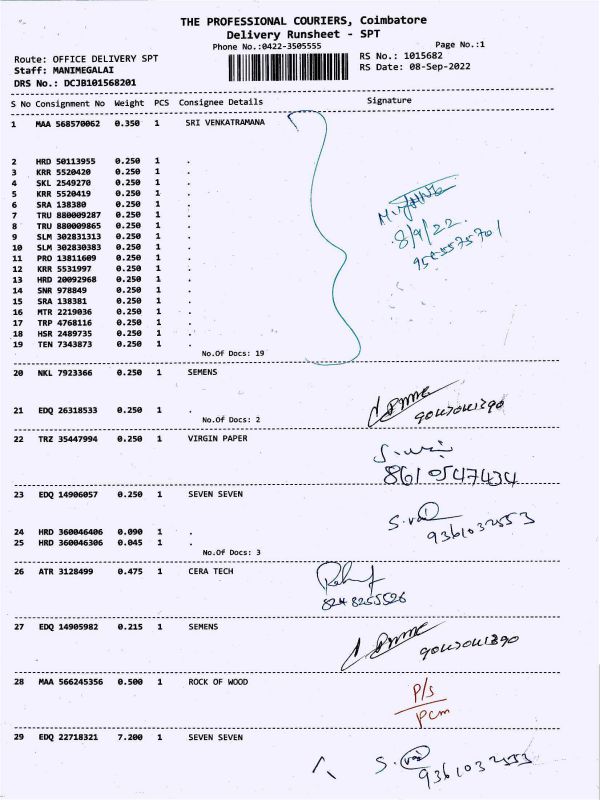 THE PROFESSIONAL COURIERS, Coimbatore
Delivery Runsheet - SPT
Phone No.:0422-3505555
Page No.:1
Route: OFFICE DELIVERY SPT
RS No.: 1015682
Staff: MANIMEGALAI
RS Date: 08-Sep-2022
DRS No.: DCJB101568201
S No Consignment No Weight PCS Consignee Details Signature
1 MAA 568570062 0.350 1 SRI VENKATRAMANA
2 HRD 50113955 0.250 1 .
3 KRR 5520420 0.250 1 .
4 SKL 2549270 0.250 1 .
5 KRR 5520419 0.250 1 .
6 SRA 138380 0.250 1 .
7 TRU 880009287 0.250 1 .
8 TRU 880009865 0.250 1 .
9 SLM 302831313 0.250 1 .
10 SLM 302830383 0.250 1 .
11 PRO 13811609 0.250 1 .
12 KRR 5531997 0.250 1 .
13 HRD 20092968 0.250 1 .
14 SNR 978849 0.250 1 .
15 SRA 138381 0.250 1 .
16 MTR 2219036 0.250 1 .
17 TRP 4768116 0.250 1 .
18 HSR 2489735 0.250 1 .
19 TEN 7343873 0.250 1 .
8/9/22
No.Of Docs: 19
20 NKL 7923366 0.250 1 SEMENS
21 EDQ 26318533 0.250 1 .
No.Of Docs: 2
22 TRZ 35447994 0.250 1 VIRGIN PAPER
8610547434
23 EDQ 14906057 0.250 1 SEVEN SEVEN
9361032553
24 HRD 360046406 0.090 1 .
25 HRD 360046306 0.045 1 .
No.Of Docs: 3
26 ATR 3128499 0.475 1 CERA TECH
8248255526
27 EDQ 14905982 0.215 1 SEMENS
28 MAA 566245356 0.500 1 ROCK OF WOOD
P/s
pcm
29 EDQ 22718321 7.200 1 SEVEN SEVEN
9361032553